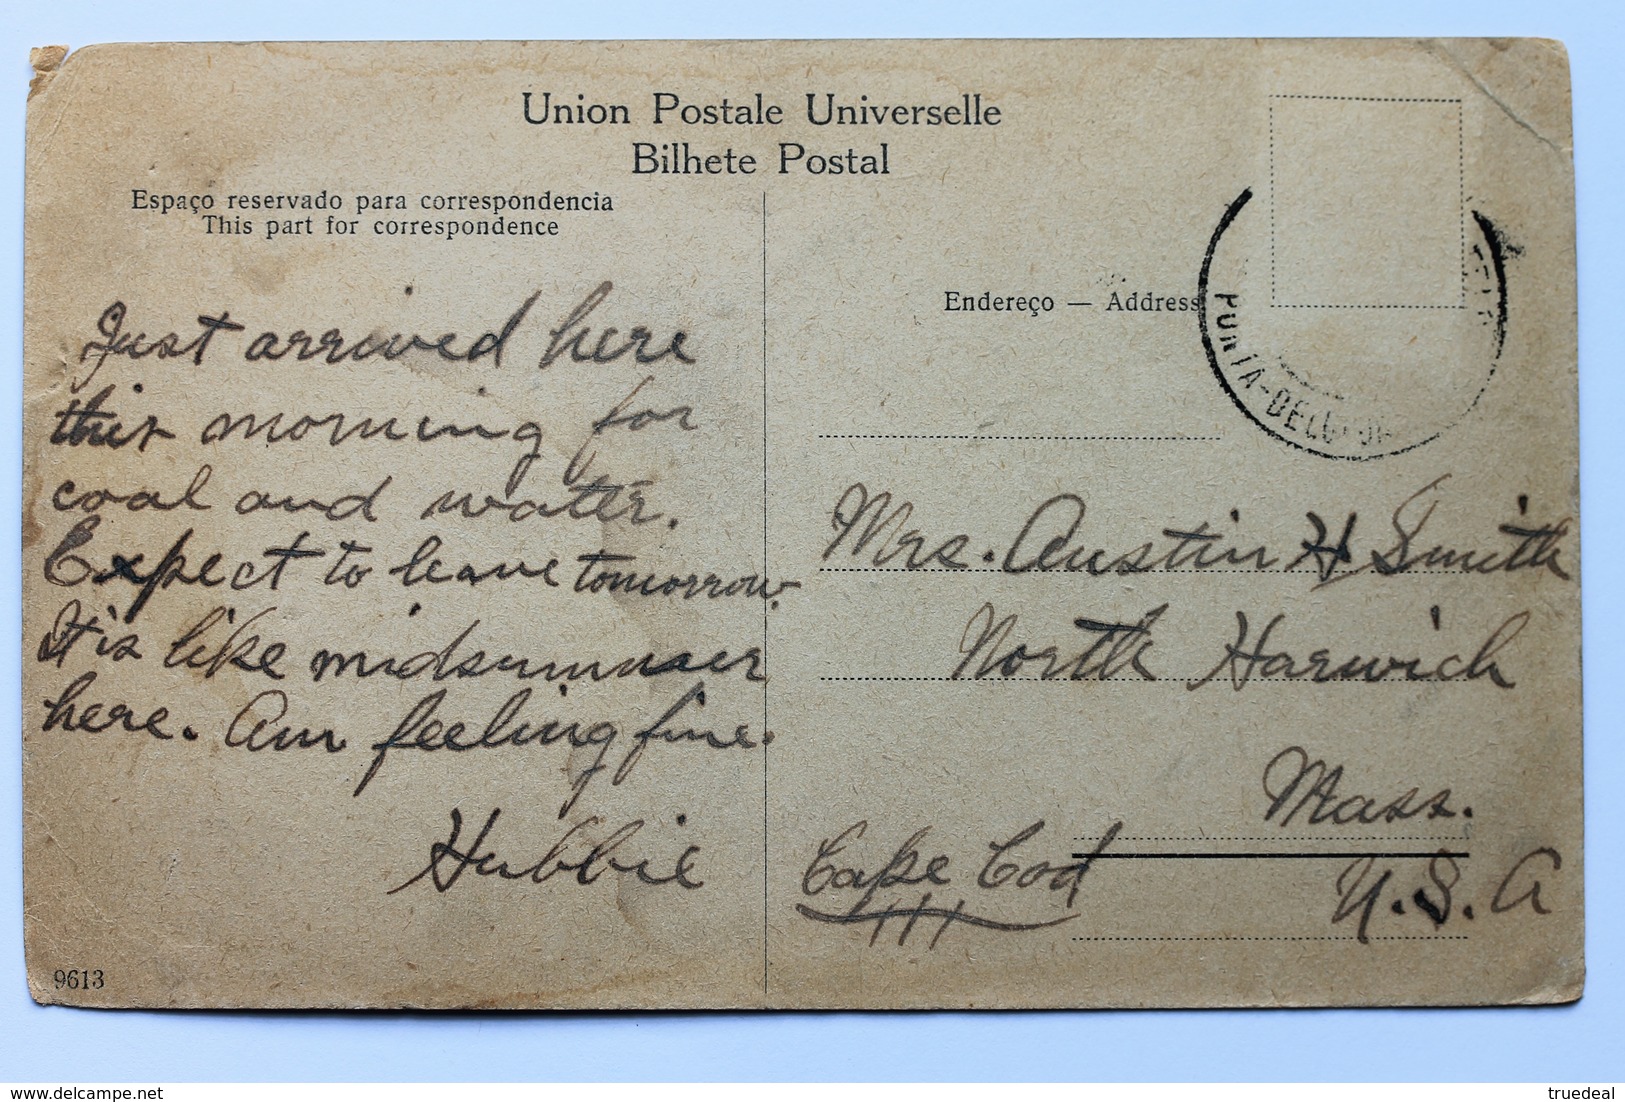 Union Postale Universelle
Bilhete Postal
Espaço reservado para correspondencia
This part for correspondence
Endereço — Address
Just arrived here
this morning for
coal and water.
Expect to leave tomorrow.
It is like midsummer
here. Am feeling fine.
Hubbie
Mrs. Austin H Smith
North Harwich
Mass.
Cape Cod
U.S.A
9613
delcampe.net
truedeal